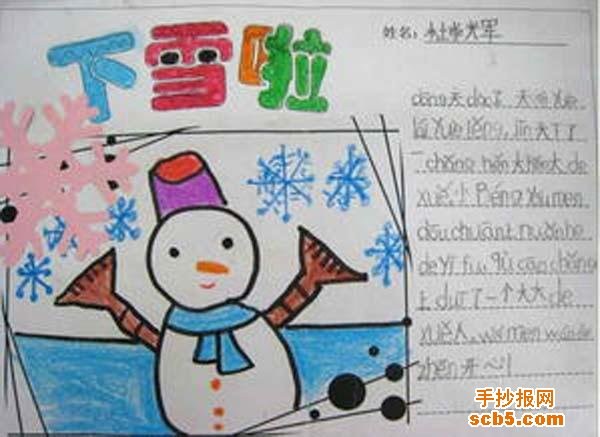 下雪啦
姓名：
dōng天dào了，天qì yuè
lái yuè lěng，jīn天下了
一chǎng hěn大hěn大de
xuě 小Péng yǒu men
dōu chuān nuǎn he
de yī fu，qù cāo chǎng
上duī了一个大大de
xuě人，wǒ men wán de
zhēn开心！
手抄报网
scb5.com